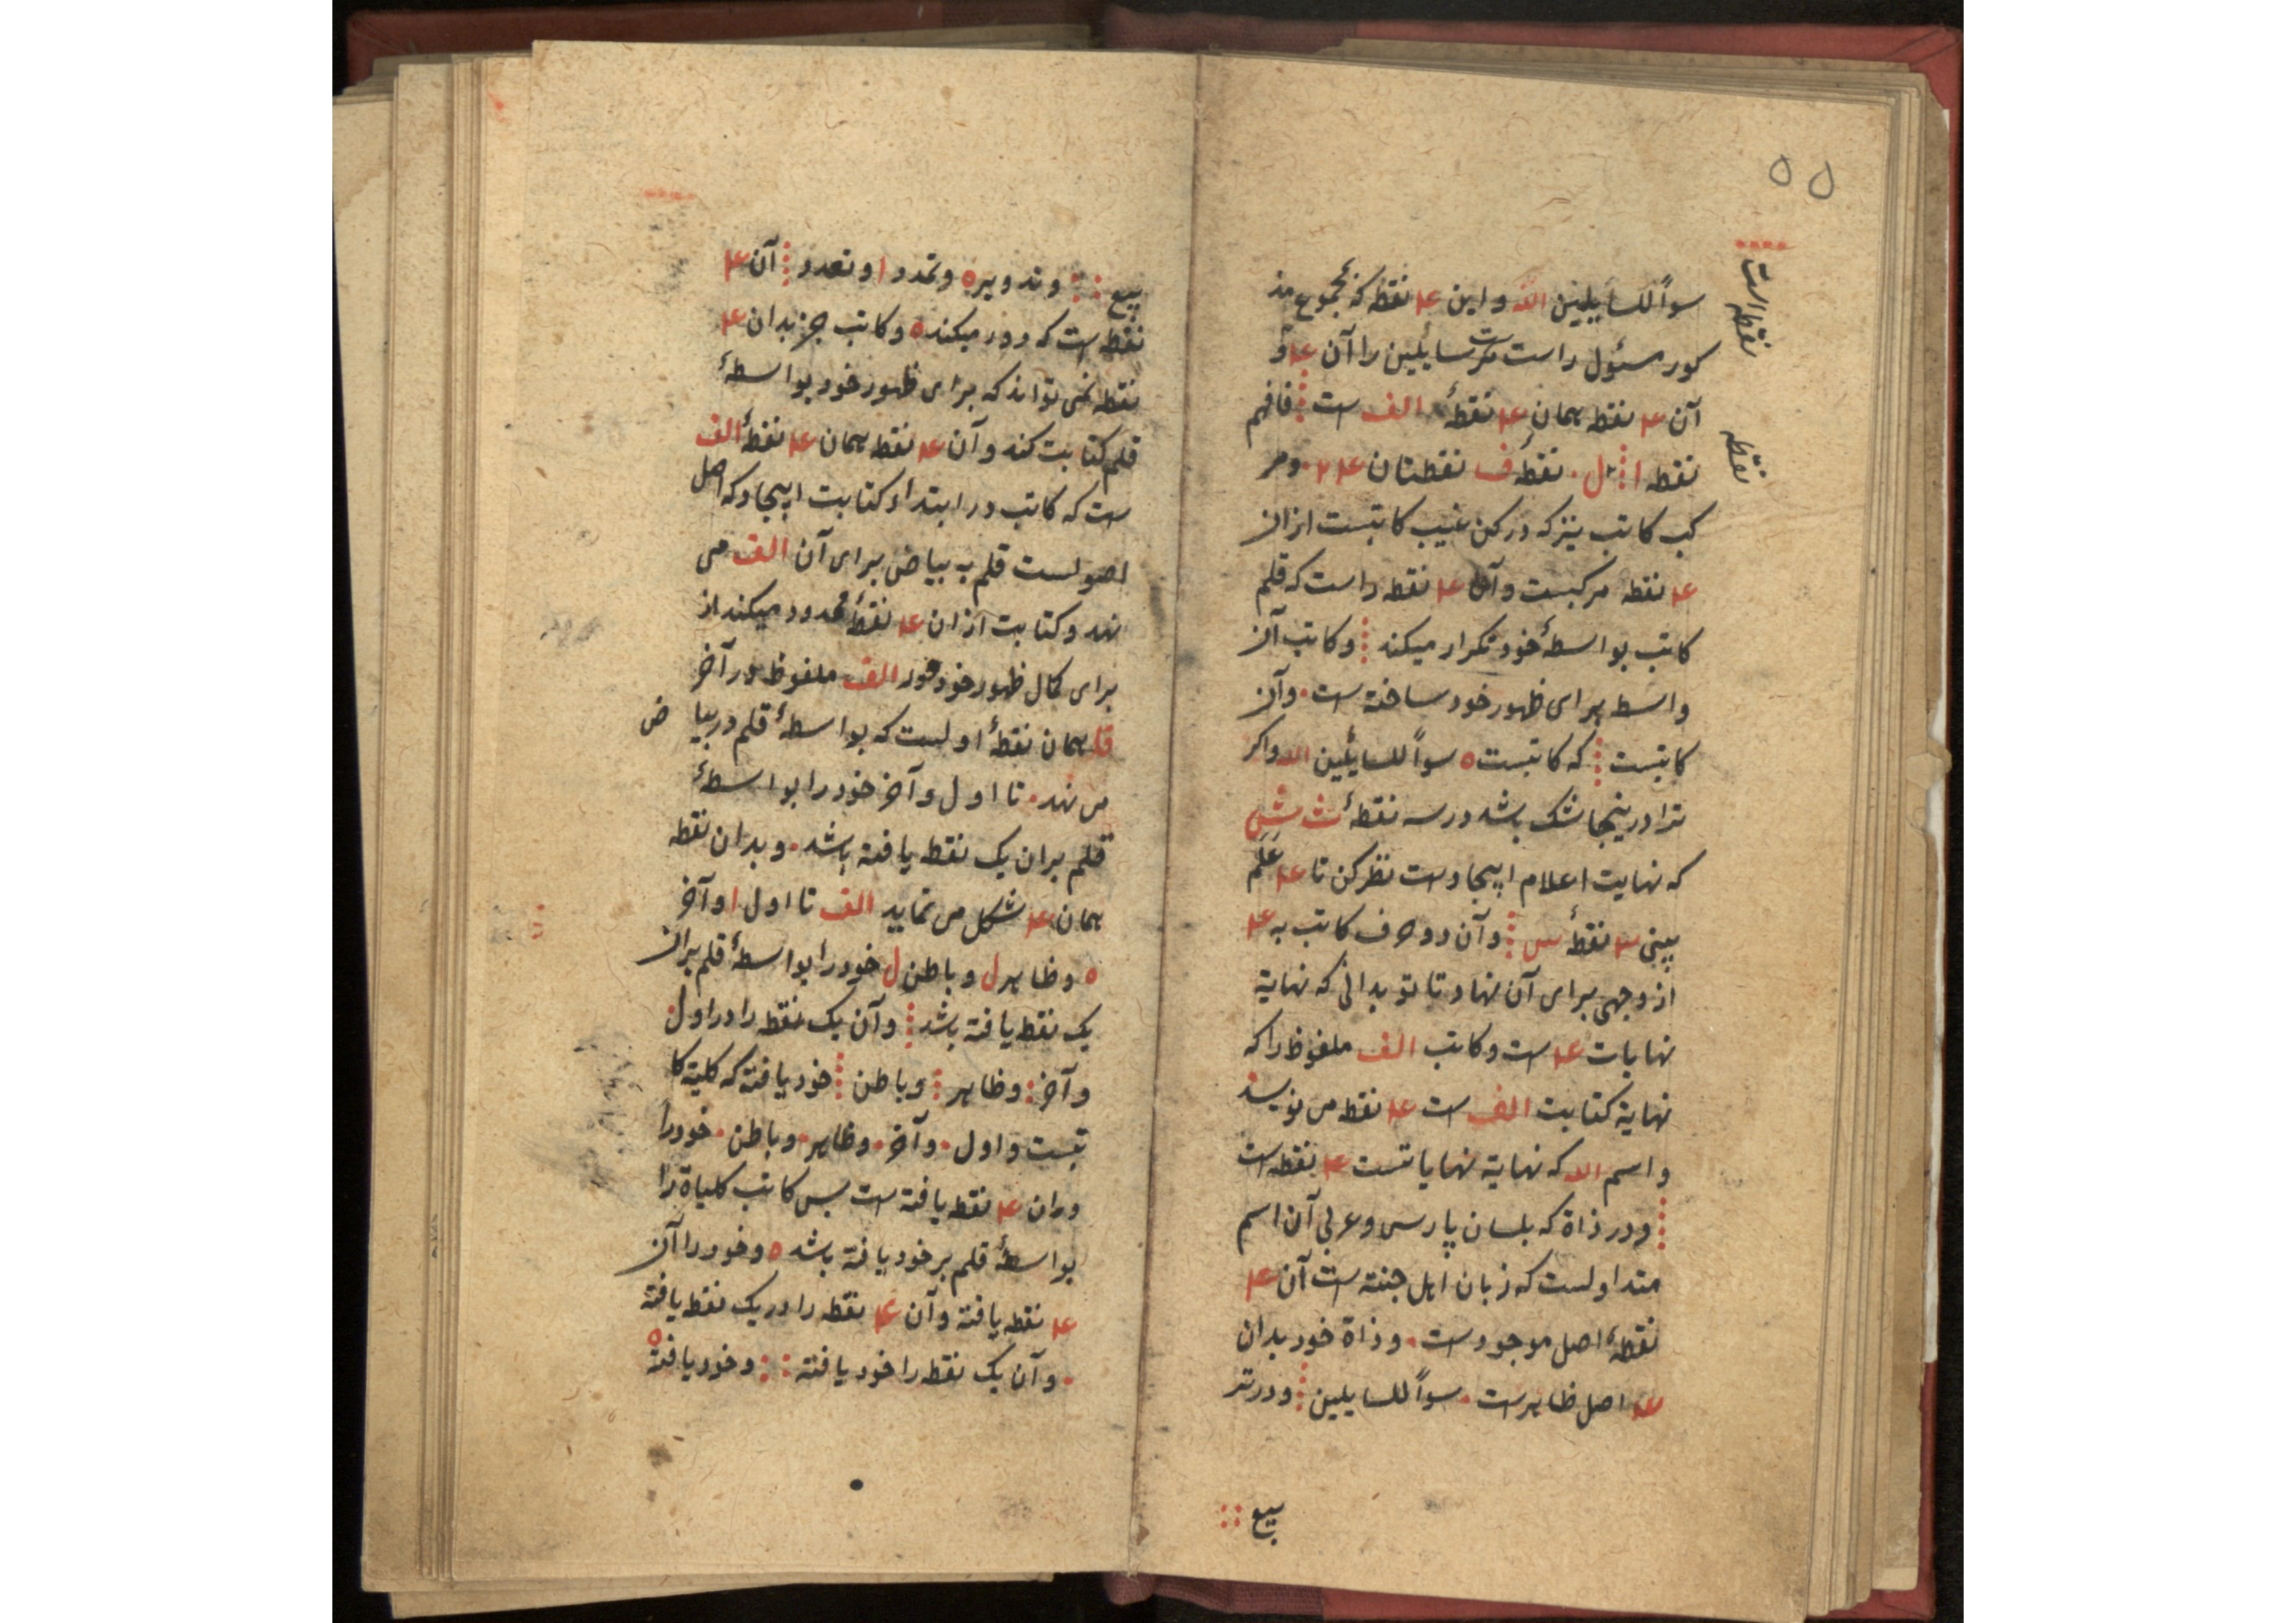 ۵۵
سوآً للسایلین الله و این ۴ نقطه که مجموع مذ
کور مسئول راست مرست سایلین را آن ۴ و
آن ۴ نقطه همان ۴ نقطهٔ الف ست ⁞ فافهم
نقطه ا ⁞ ل ۰ نقطهٔ ف نقطتان ۴ ۲ ۰ و مر
کب کاتب نیز که در کن غیب کاتبست از ان
۴ نقطه مرکبست و آن ۴ نقطه راست که قلم
کاتب بواسطهٔ خود تکرار میکند ⁞ و کاتب آن
واسطه برای ظهور خود ساخته ست ۰ و آن
کاتبست ⁞ که کاتبست ه سوآً للسایلین الله و اکر
ترا درینجا شک باشد در سه نقطهٔ ث ش
که نهایت اعلام ایبجادست نظر کن تا ۴ عَلَم
بینی ۴ نقطهٔ س ⁞ و آن دو حرف کاتب به ۴
از وجهی برای آن نهاد تا تو بدانی که نهایة
نهایات ۴ ست و کاتب الف ملفوظ را که
نهایة کتابت الف ست ۴ نقطه می نویسد
و اسم الله که نهایة نهایاتست ۴ نقطه است
⁞ و در ذاة که بلسان پارسی و عربی آن اسم
متداولست که زبان اهل جنته است آن ۴
نقطهٔ اصل موجودست ۰ و ذاة خود بدان
۴ اصل ظاهرست ۰ سوآً للسایلین ⁞ و در تر
بیع ∷
نقطه است
نقطه
بیع ∷ و تدویر ه و تمدد ا و تعدد ⁞ آن ۴
نقطه است که دور میکند ه و کاتب جز بدان ۴
نقطه نمی تواند که برای ظهور خود بواسطهٔ
قلم کتابت کند و آن ۴ نقطه همان ۴ نقطهٔ الف
ست که کاتب در ابتداء کتابت ایبجاد که اصل
اصولست قلم به بیاض برای آن الف می
نهد و کتابت از ان ۴ نقطهٔ محدود میکند از
برای کمال ظهور خود الف ملفوظ در آخر
همان نقطهٔ اولست که بواسطهٔ قلم در بیاض
می نهد ۰ تا اول و آخر خود را بواسطهٔ
قلم بران یک نقطه یافته باشد ۰ و بدان نقطه
همان ۴ شکل می نماید الف تا اول ا و آخر
ه و ظاهر ل و باطن ل خود را بواسطهٔ قلم بر ان
یک نقطه یافته باشد ⁞ و آن یک نقطه را در اول
و آخر : و ظاهر ⁝ و باطن ⁞ خود یافته که کلیة کا
تبست و اول ۰ و آخر ۰ و ظاهر ۰ و باطن ۰ خود را
در ان ۴ نقطه یافته ست بس کاتب کلیاة را
بواسطهٔ قلم بر خود یافته باشد ه و خود را آن
۴ نقطه یافته و آن ۴ نقطه را در یک نقطه یافته
۰ و آن یک نقطه را خود یافته ∷ و خود یافته ه